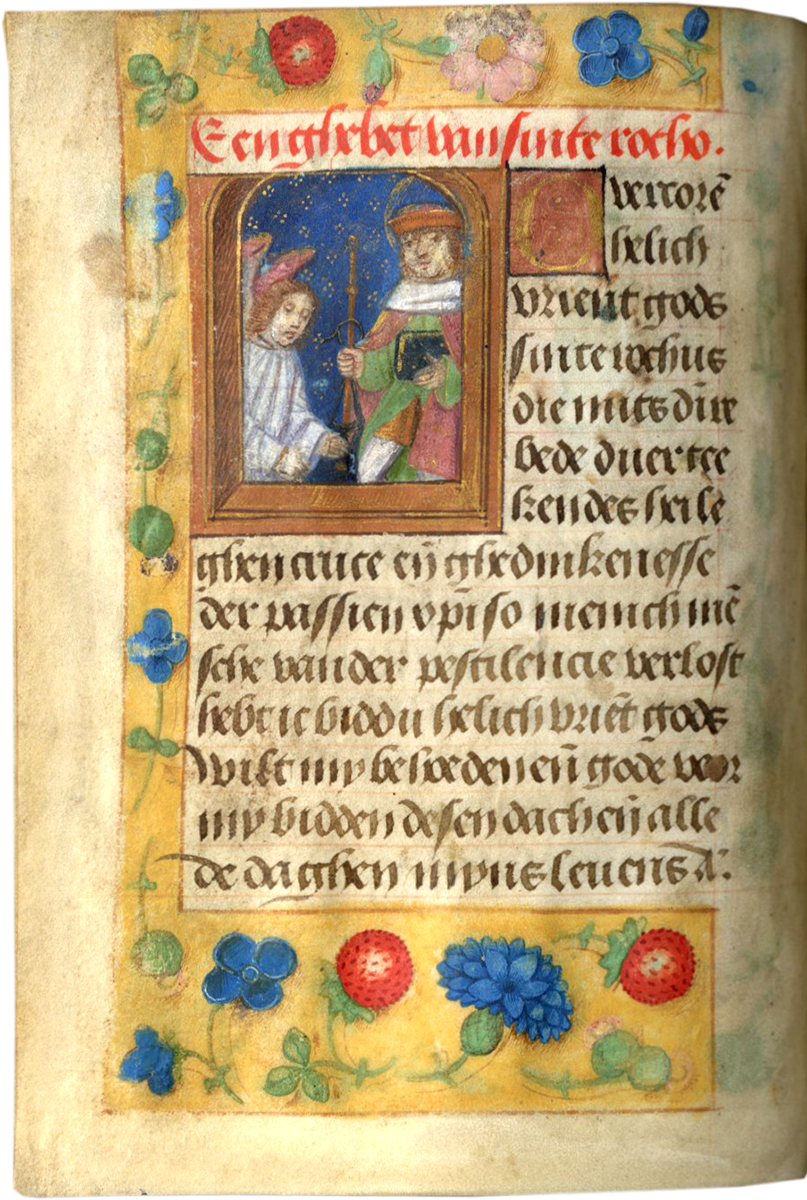 Een ghebet van sinte rocho.
O vercorē
helich
vrient gods
sinte rochus
die mits dūre
bede duer tee
kendes heile
ghen cruce eñ ghedinkenesse
der passien xp̄i so menich mē
sche van der pestilencie verlost
hebt ic bidd u helich vriēt gods
wilt my behoeden eñ gode voor
my bidden desen dach eñ alle
de daghen myns leuens A: